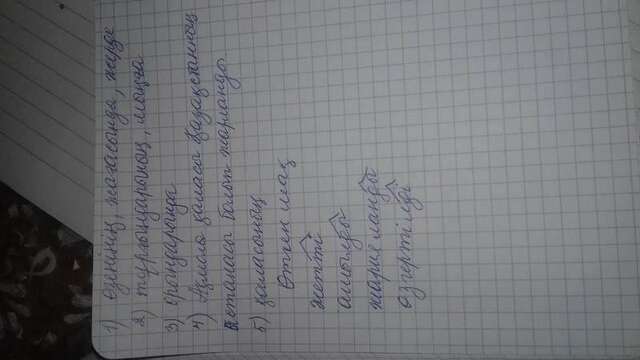 1) өзенінің, жағасында, жерде
2) тұрғындарының, мыңға
3) орындарында
4) Ақмола қаласы Қазақстанның
астанасы болып жарланды
5) қаласының
Өткен шақ
жетті
ашылды
жарияланды
өзгертілді